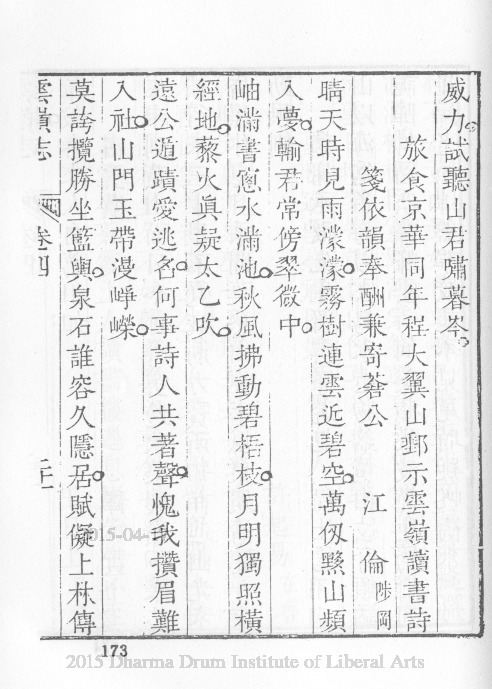 威力試聽山君嘯暮岑
旅食京華同年程大翼山郵示雲嶺讀書詩
箋依韻奉酬兼寄蒼公　江　倫陟岡
晴天時見雨濛濛霧樹連雲近碧空萬仭黟山頻
入夢輸君常傍翠微中
岫滿書窻水滿池秋風拂動碧梧枝月明獨照橫
經地藜火眞疑太乙吹
遠公遁蹟愛逃名何事詩人共著聲愧我攢眉難
入社山門玉帶漫崢嶸
莫誇攬勝坐籃輿泉石誰容久隱居賦儗上林傳
雲嶺志　卷四　二十一
173
2015-04-
2015 Dharma Drum Institute of Liberal Arts